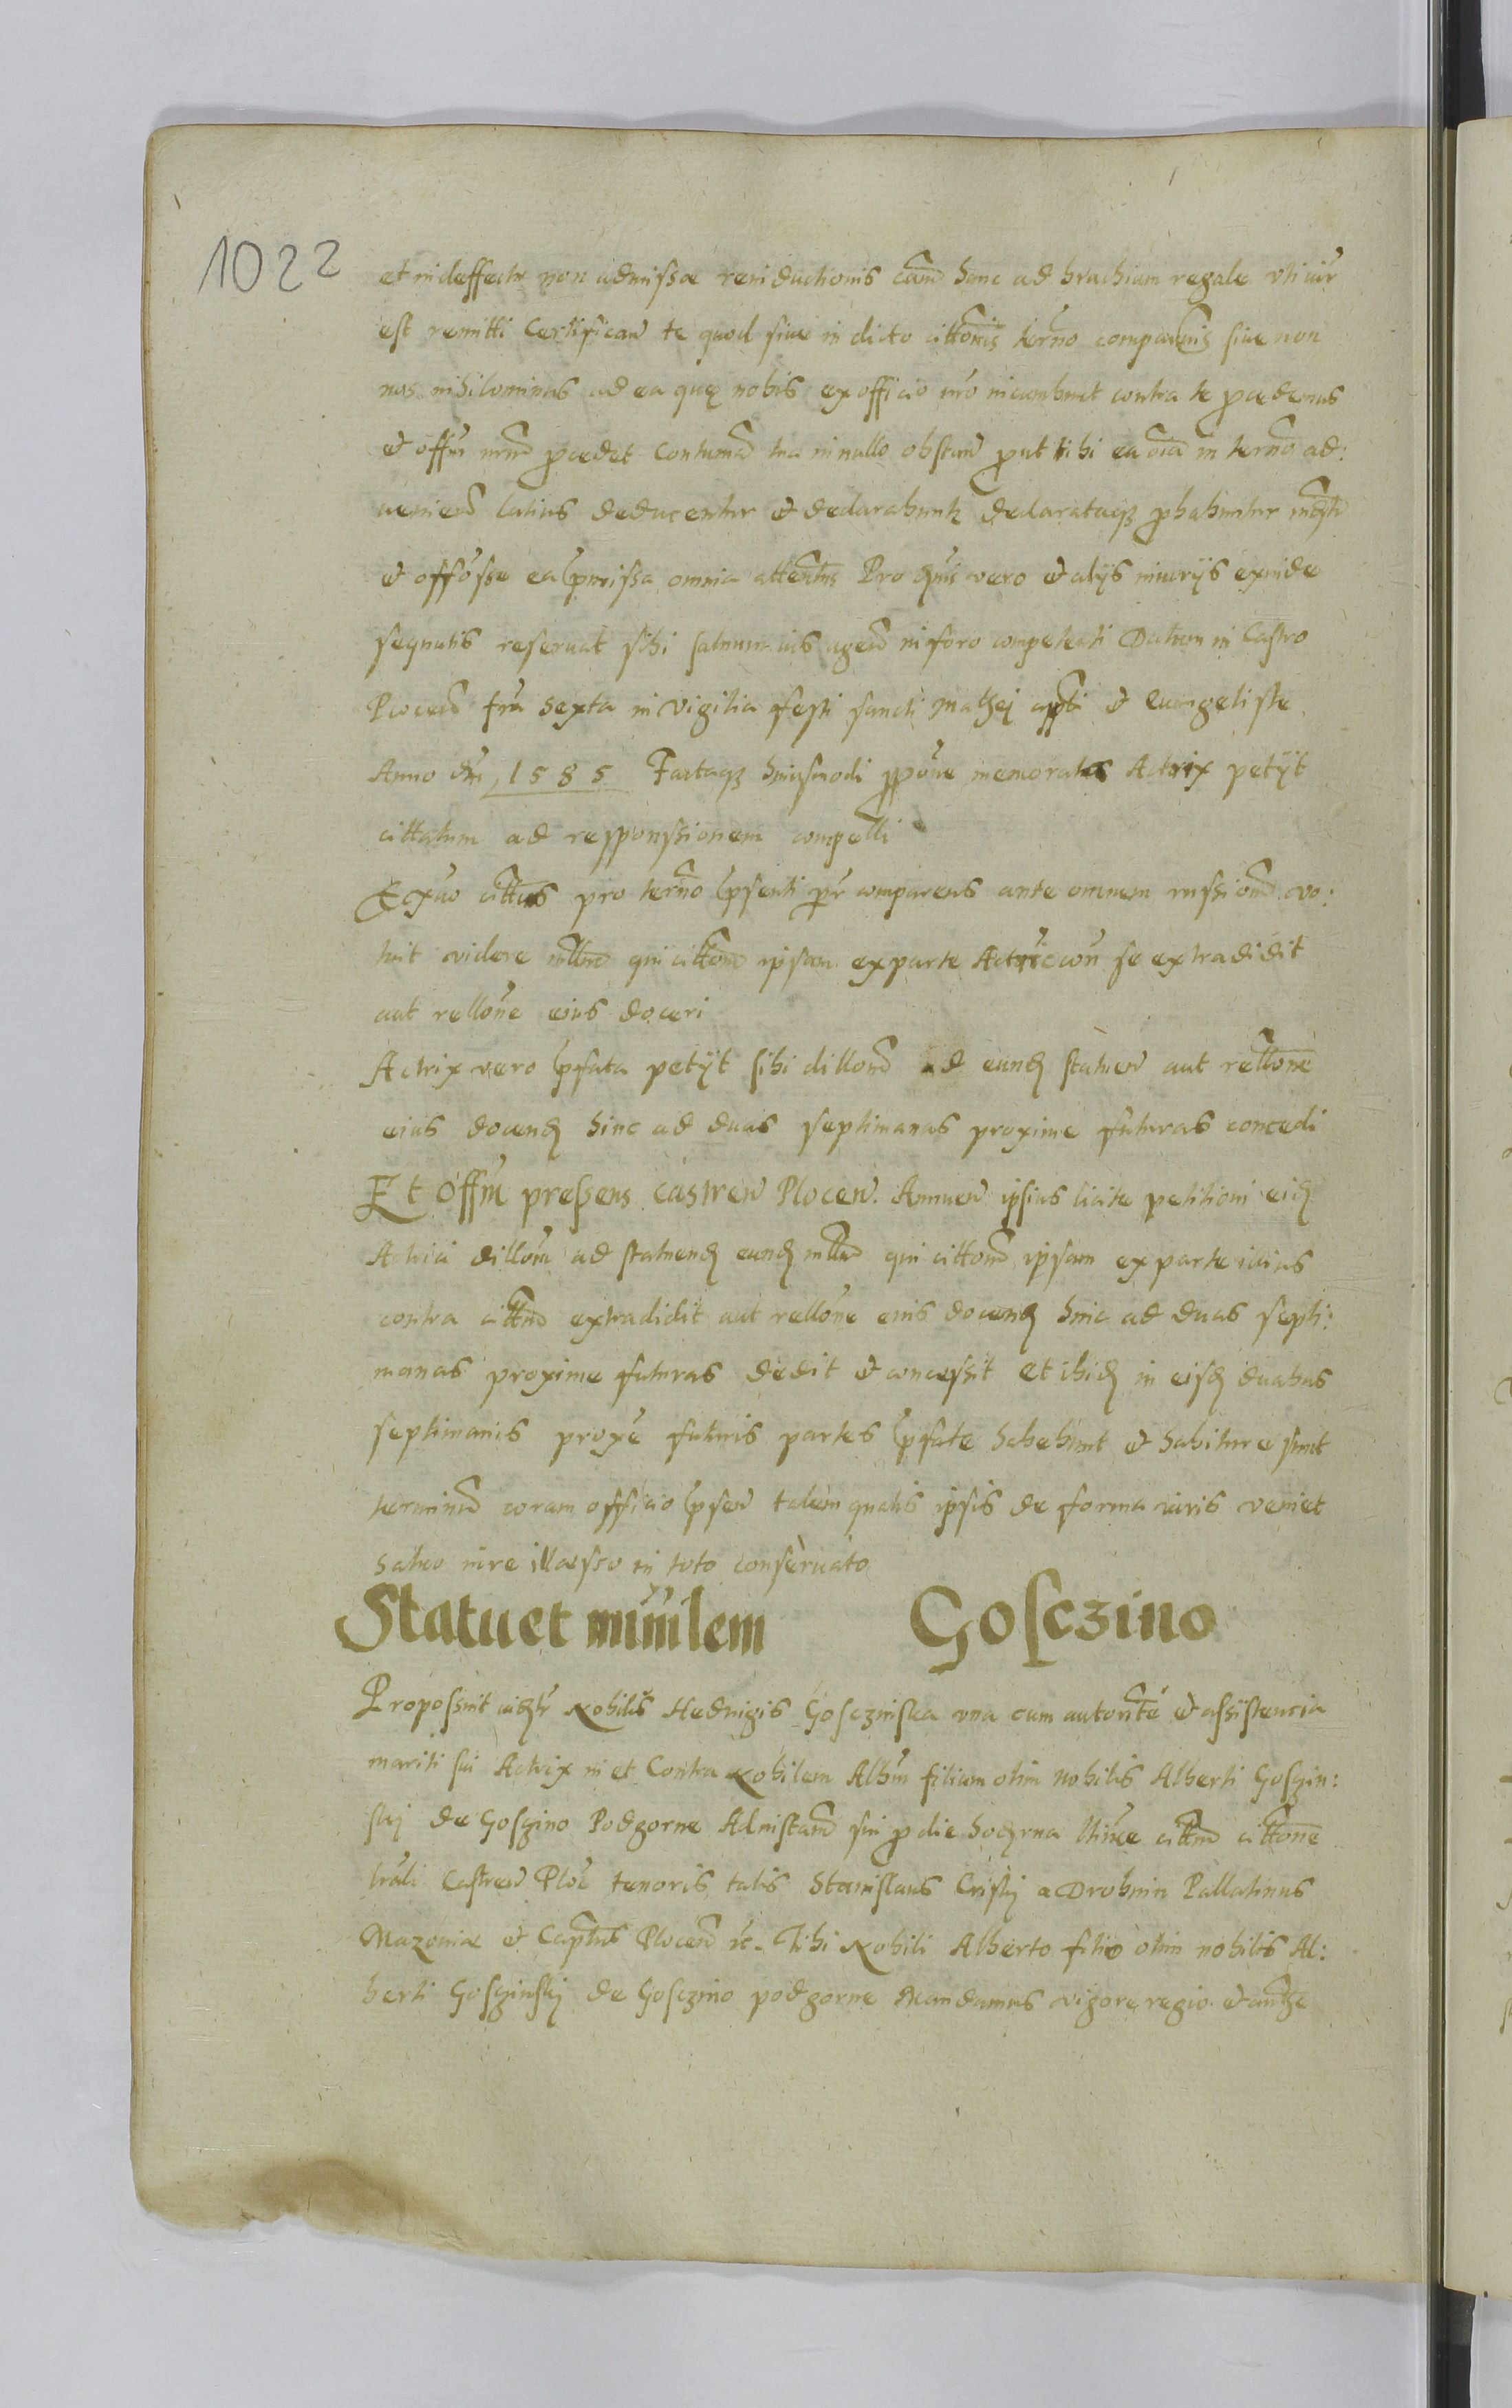 1022
et in deffectu non admissæ reinductionis cam̃ hanc ad brachium regale vti iur̃
est remitti Certifican̄ te quod siue in dicto cittōnis term̃o comparũis siue non
nos nihilominus ad ea quę nobis ex officio nr̃o incumbunt contra te pcedemus
et offm̃ nrm̃ pcedet Contumã tua in nullo obstan̄ put tibi ea oĩa in term̃o ad:
uenien̄ latius deducentur et declarabuntr declarataqȝ phabuntur
et offōsse ea pmissa omnia attentus Pro quis vero et alijs iniurijs exinde
sequutis reseruat sibi saluum ius agen̄ in foro competenti Datum in Castro
Plocen̄ fr̃a sexta in vigilia festi sancti Mathei apłi et Euangeliste
Anno dñi 1585 Factaqȝ huiusmodi ppōne memorata Actrix petÿt
cittatum ad responssionem compelli
Ex quo citttus pro term̃o psenti pr comparens ante omnem missionẽ vo:
luit videre mltrẽ qui cittōnẽ ipsam ex parte Actricis con̄ se extradidit
aut rellōne eius doceri
Actrix vero pfata petÿt sibi dillonẽ ad eund statuen̄ aut rellonẽ
eius docend hinc ad duas septimanas proxime futuras concedi
Et Offm̃ presens castren̄ Plocen̄. Annuen̄ ipsius licite petitioni eid
Actrici dillom̃ ad statuend eund mltrẽ qui cittonẽ ipsam ex parte illius
contra cittũ extradidit aut rellōne eius docend hinc ad duas septi:
manas proxime futuras dedit et concessit et ibid in eisd duabus
septimanis proxẽ futuris partes pfate habebunt et habiture sunt
terminũ coram officio psen̄ talem qualis ipsis de forma iuris veniet
saluo iure illæsso in toto conseruato
Statuet minilem Gosczino
Propossuit Nobilis Heduigis Gosczinska vna cum autoritẽ et assistencia
mariti sui Actrix in et Contra Nobilem Albm̃ filium olim nobilis Alberti Gosczin:
skj de Gosczino Podgorne Ad instanã sui p die hodierna cittũ cittonẽ
lr̃ali Castren̄ Ploc̃ tenoris talis Stanislaus Criskj a Drobnin Pallatinus
Mazoniæ et Capitus Plocen̄ ꝛc. Tibi Nobili Alberto filio olim nobilis Al:
berti Gosczinskj de Gosczino podgorne Mandamus vigore regio et